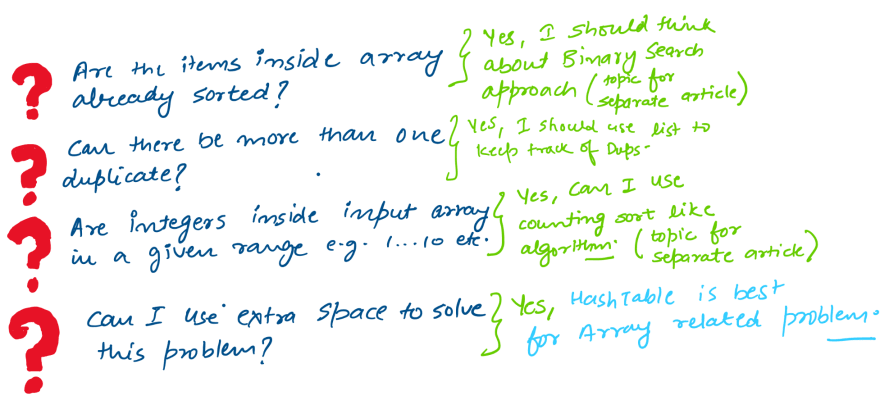 ? Are the items inside array
already sorted?
Yes, I should think
about Binary Search
approach (topic for
separate article)
? Can there be more than one
duplicate?
Yes, I should use list to
keep track of Dups.
? Are integers inside input array
in a given range e.g. 1...10 etc.
Yes, Can I use
counting sort like
algorithm. (topic for
separate article)
? Can I use extra space to solve
this problem?
Yes, HashTable is best
for Array related problem.